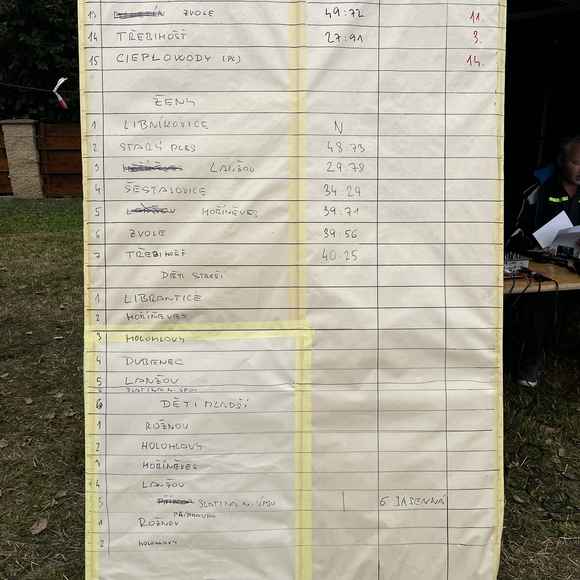 13 ZVOLE 49:72 11.
14 TŘEBIHOŠŤ 27:91 3.
15 CIEPŁOWODY (PL) 14.
ŽENY
1 LIBNÍKOVICE N
2 STARÝ PLES 48.73
3 LANŽOV 29.78
4 ŠESTAJOVICE 34.29
5 HOŘINĚVES 39.71
6 ZVOLE 39.56
7 TŘEBIHOŠŤ 40.25
DĚTI STARŠÍ
1 LIBRANTICE
2 HOŘINĚVES
3 HOLOHLAVY
4 DUBENEC
5 LANŽOV
6 DĚTI MLADŠÍ
1 ROŽNOV
2 HOLOHLAVY
3 HOŘINĚVES
4 LANŽOV
5 SLATINA N. ÚPOU 6 JASENNÁ
PŘÍPRAVKA
1 ROŽNOV
2 HOLOHLAVY